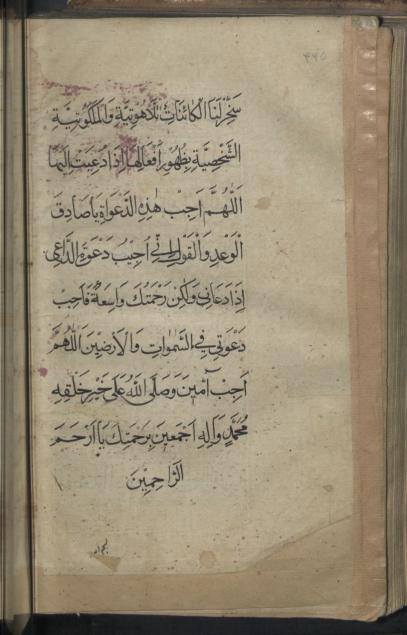 ۴۴۵
سَخِّرْ لَنَا الْكَائِنَاتُ لَاهُوتِيَّةِ وَالْمَلَكُوتِيَّةِ
الشَّخْصِيَّةِ بِظُهُورِ اَفْعَالِهَا اِذَا دُعِيَتْ اِلَيْهَا
اَللّٰهُمَّ اَجِبْ هٰذِهِ الدَّعْوَاةِ يَا صَادِقَ
الْوَعْدِ وَالْقَوْلِ اِنِّي اُجِيْبُ دَعْوَةَ الدَّاعِي
اِذَا دَعَانِي وَلٰكِنْ رَحْمَتُكَ وَاسِعَةٌ فَاجِبْ
دَعْوَتِي فِي السَّمٰوَاتِ وَالْاَرَضِيْنَ اَللّٰهُمَّ
اَجِبْ آمِيْنَ وَصَلَّى اللّٰهُ عَلٰى خَيْرِ خَلْقِهِ
مُحَمَّدٍ وَآلِهِ اَجْمَعِيْنَ بِرَحْمَتِكَ يَا اَرْحَمَ
الرَّاحِمِيْنَ